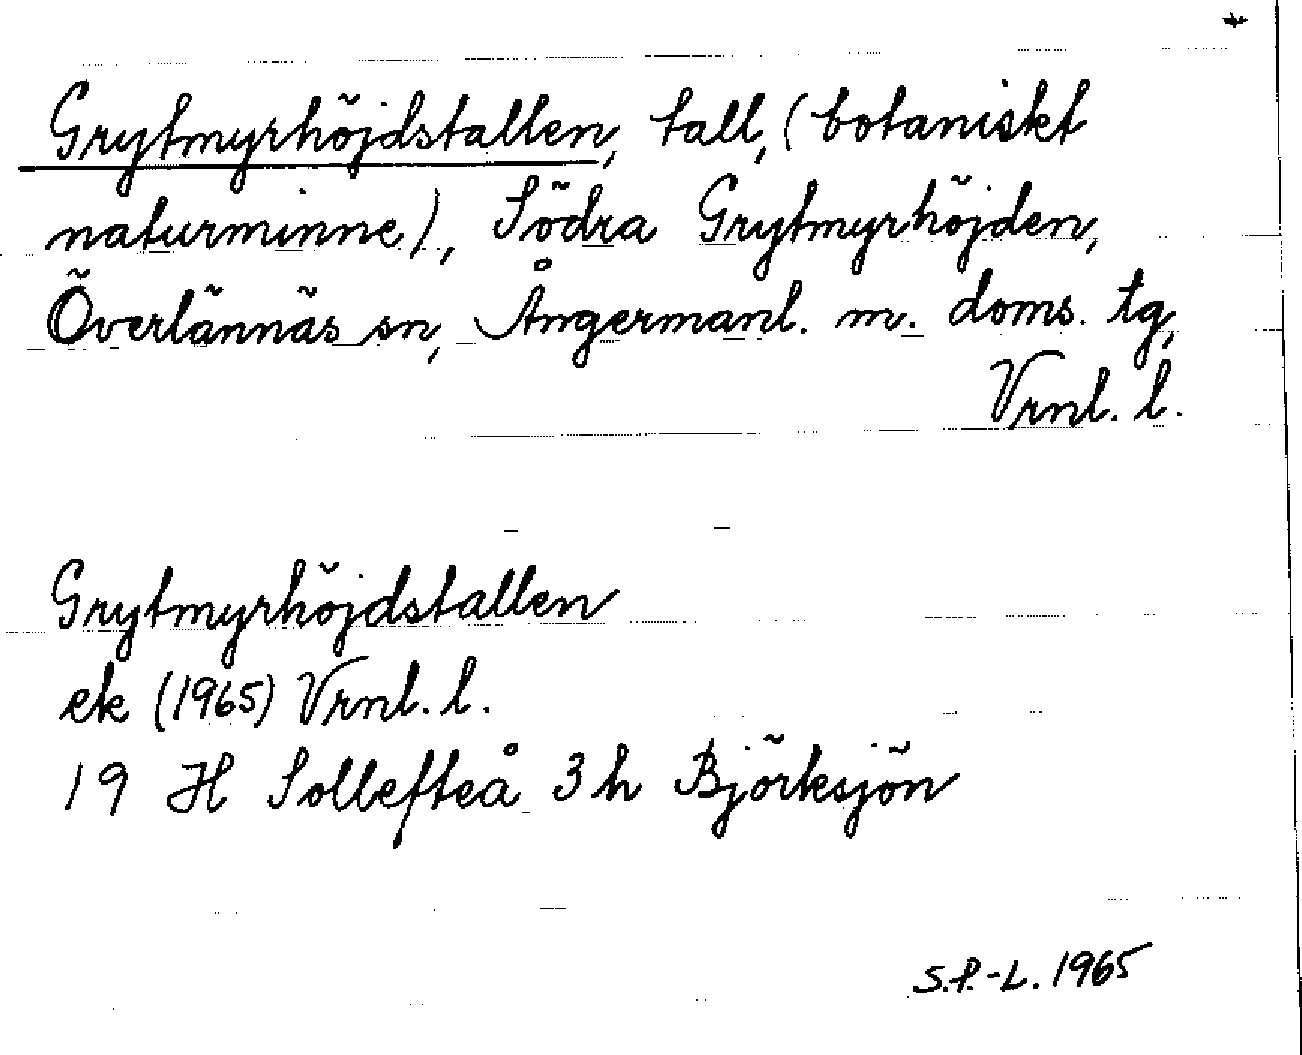 Grytmyrhöjdstallen, tall, (botaniskt
naturminne), Södra Grytmyrhöjden,
Överlännäs sn, Ångermanl. m. doms. tg,
Vrnl. l.
Grytmyrhöjdstallen
ek (1965) Vrnl. l.
19 H Sollefteå 3h Björksjön
S.P.-L. 1965